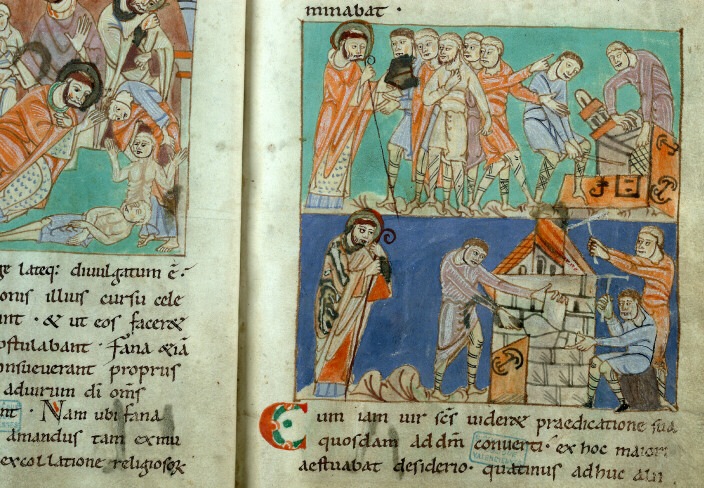 ge lateq: divulgatum ē·
oris illius cursu cele
unt · & ut eos facer&
postulabant · Fana &iā
onsueverant proprus
advirum di om̄s
nt · Nam ubi fana
amandus tam ex mu
ex collatione religiosoꝝ
minabat ·
Cum iam vir scs vider& praedicatione sua
quosdam ad dm̄ converti · ex hoc maiori
aestuabat desiderio · quatinus adhuc alii
VALENCIENNES